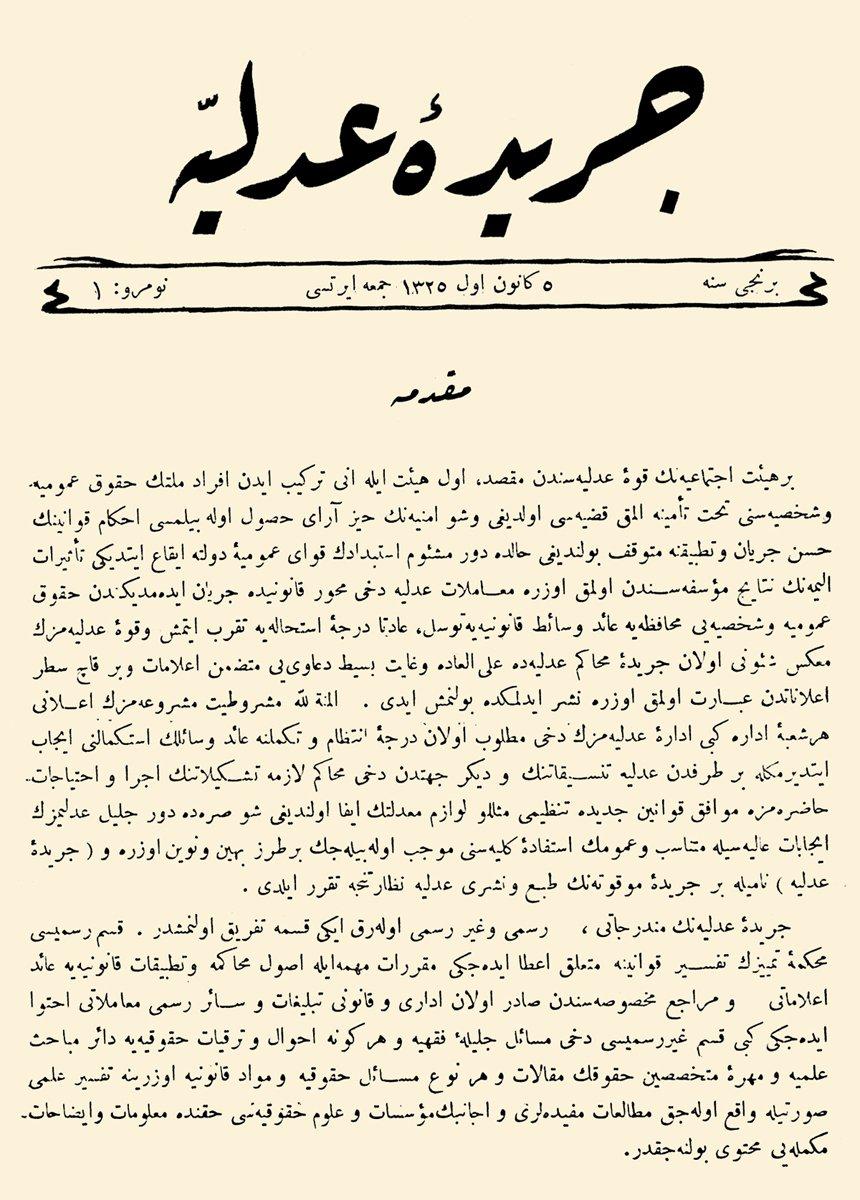 جريدۀ عدليّه
برنجی سنه
٥ كانون اول ١٣٢٥ جمعه ايرتسی
نومرو: ١
مقدمه
برهيئت اجتماعيه‌نك قوۀ عدليه‌سندن مقصد، اول هيئت ايله انی تركيب ايدن افراد ملتك حقوق عموميه
وشخصيه‌سنی تحت تأمينه المق قضيه‌سی اولديغی وشو امنيه‌نك حيز آرای حصول اوله بيلمسی احكام قوانينك
حسن جريان وتطبيقنه متوقف بولنديغی حالده دور مشئوم استبدادك قوای عموميۀ دولته ايقاع ايتديكی تأثيرات
اليمه‌نك نتايج مؤسفه‌سندن اولمق اوزره معاملات عدليه دخی محور قانونيده جريان ايده‌مديكندن حقوق
عموميه وشخصيه‌يی محافظه‌يه عائد وسائط قانونيه‌يه‌توسل، عادتا درجۀ استحاله‌يه تقرب ايتمش وقوۀ عدليه‌مزك
معكس شئونی اولان جريدۀ محاكم عدليه‌ده علی العاده وغايت بسيط دعاوی‌يی متضمن اعلامات وبر قاچ سطر
اعلاناتدن عبارت اولمق اوزره نشر ايدلمكده بولنمش ايدی . المنة لله مشروطيت مشروعه‌مزك اعلانی
هرشعبۀ اداره كبی ادارۀ عدليه‌مزك دخی مطلوب اولان درجۀ انتظام و تكملنه عائد وسائلك استكمالنی ايجاب
ايتديرمكله بر طرفدن عدليه تنسيقاتنك و ديكر جهتدن دخی محاكم لازمه تشكيلاتنك اجرا و احتياجات
حاضره‌مزه موافق قوانين جديده تنظيمی مثللو لوازم معدلتك ايفا اولنديغی شو صره‌ده دور جليل عدليمزك
ايجابات عاليه‌سيله متناسب وعمومك استفادۀ كليه‌سنی موجب اوله‌بيله‌جك برطرز بهين ونوين اوزره و ( جريدۀ
عدليه ) ناميله بر جريدۀ موقوته‌نك طبع ونشری عدليه نظارتنجه تقرر ايلدی .
جريدۀ عدليه‌نك مندرجاتی ، رسمی وغير رسمی اوله‌رق ايكی قسمه تفريق اولنمشدر . قسم رسميسی
محكمۀ تميزك تفسير قوانينه متعلق اعطا ايده‌جكی مقررات مهمه‌ايله اصول محاكمه وتطبيقات قانونيه‌يه عائد
اعلاماتی و مراجع مخصوصه‌سندن صادر اولان اداری و قانونی تبليغات و سائر رسمی معاملاتی احتوا
ايده‌جكی كبی قسم غيررسميسی دخی مسائل جليلۀ فقهيه و هركونه احوال و ترقيات حقوقيه‌يه دائر مباحث
علميه و مهرۀ متخصصين حقوقك مقالات و هر نوع مسائل حقوقيه و مواد قانونيه اوزرينه تفسير علمی
صورتيله واقع اوله‌جق مطالعات مفيده‌لری و اجانبك‌مؤسسات و علوم حقوقيه‌سی حقنده معلومات وايضاحات
مكمله‌يی محتوی بولنه‌جقدر.